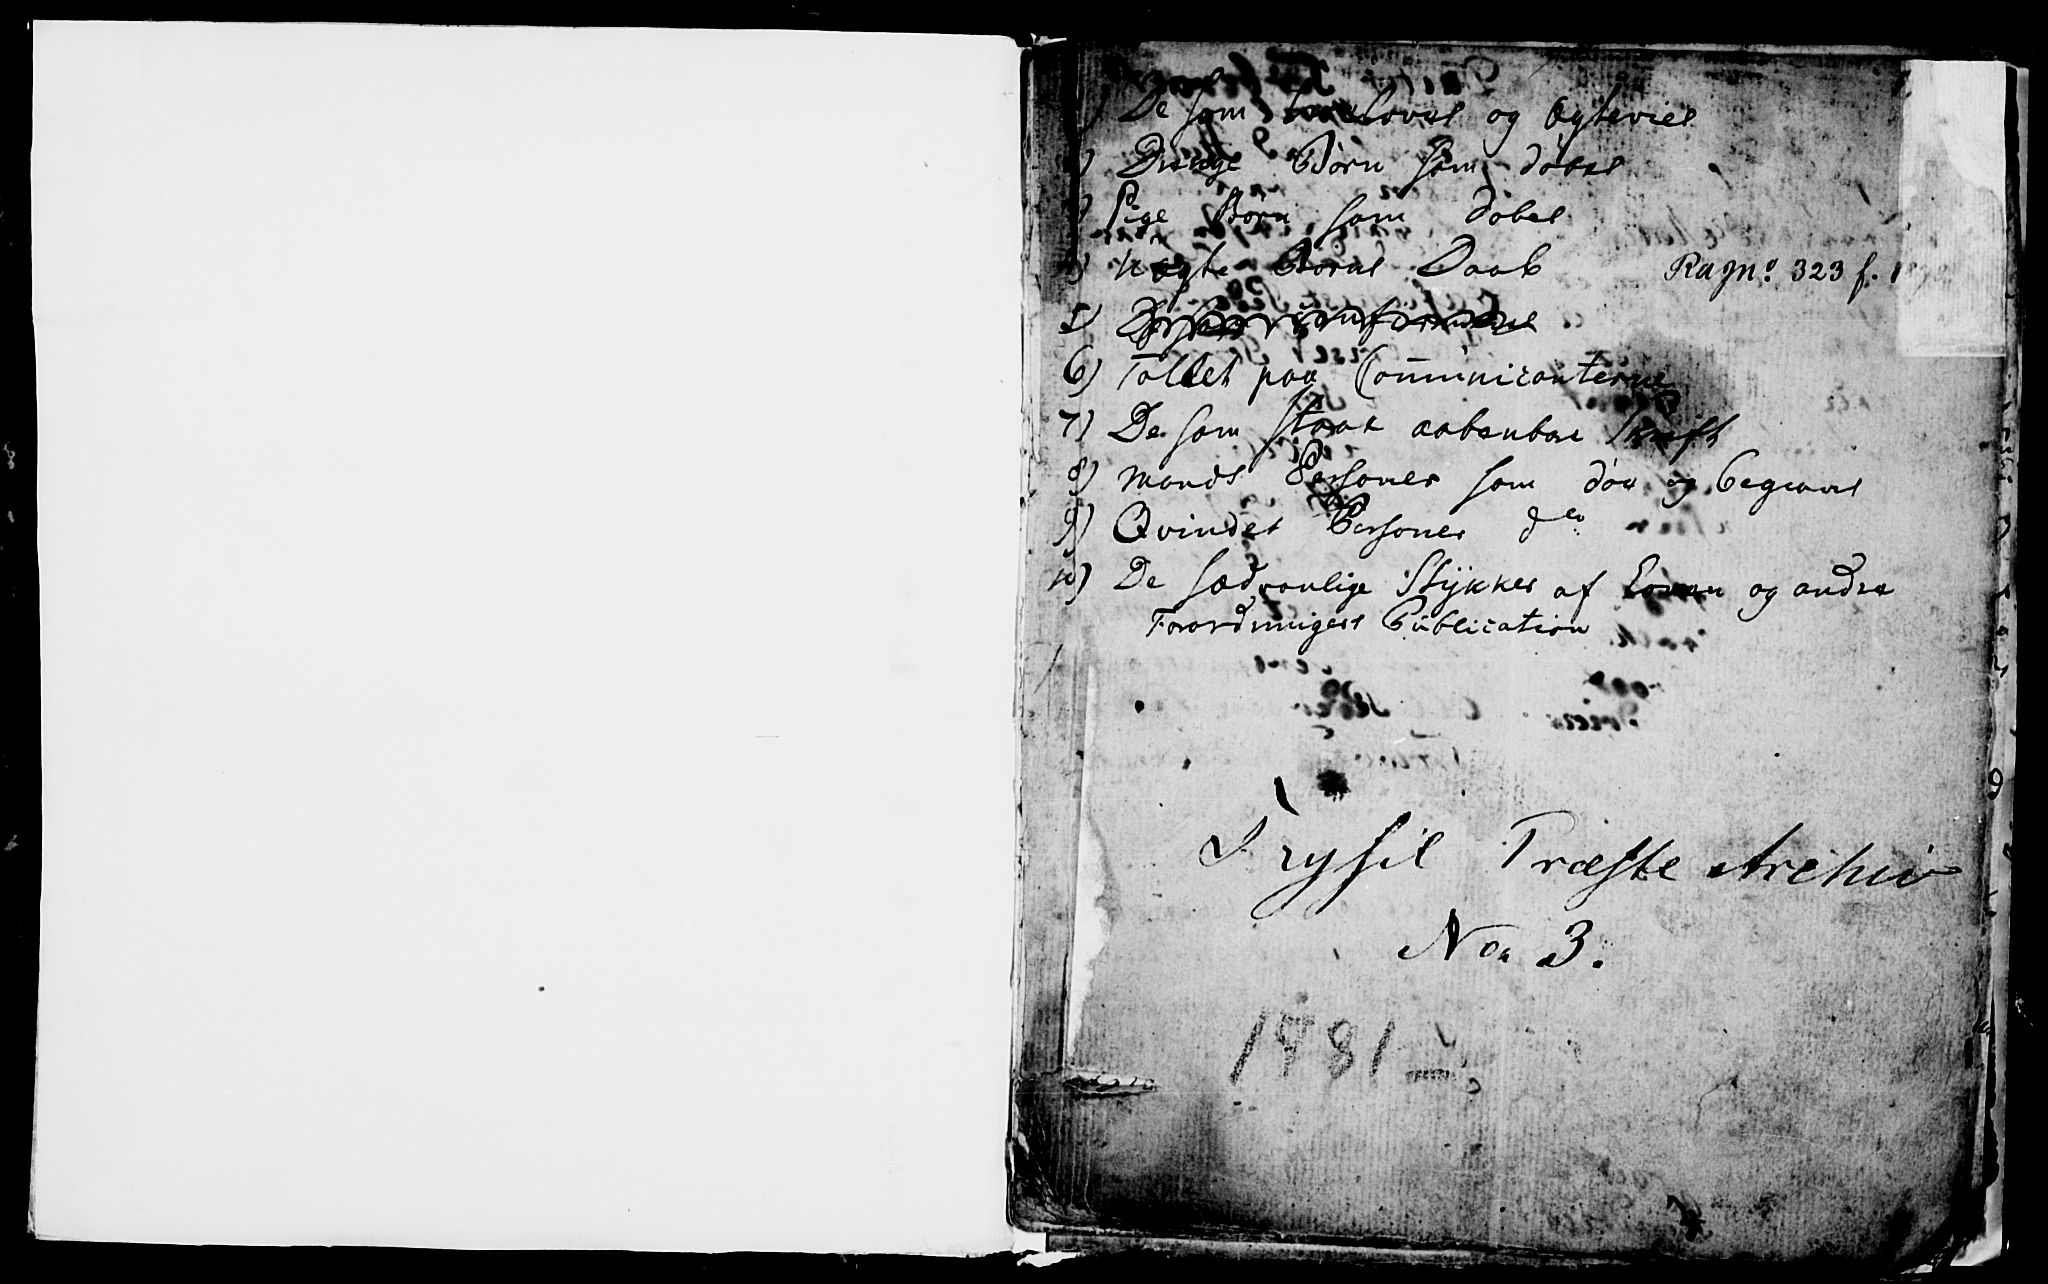 1) De som troloves og Egtevies
2) Drenge Børn som døbes
3) Pige Børn som døbes
4) Uægte Børns Daab
Rag No. 323 f.
5)
6) Tallet paa Com̄unicanterne
7) De som staae aabenbare Skrift
8) Mands Personer som døe og begraves
9) Qvindes Personer do
10) De sædvanlige Stÿkker af Loven og andre
Forordningers Publication
Trysil Præste Archiv
No 3.
1781